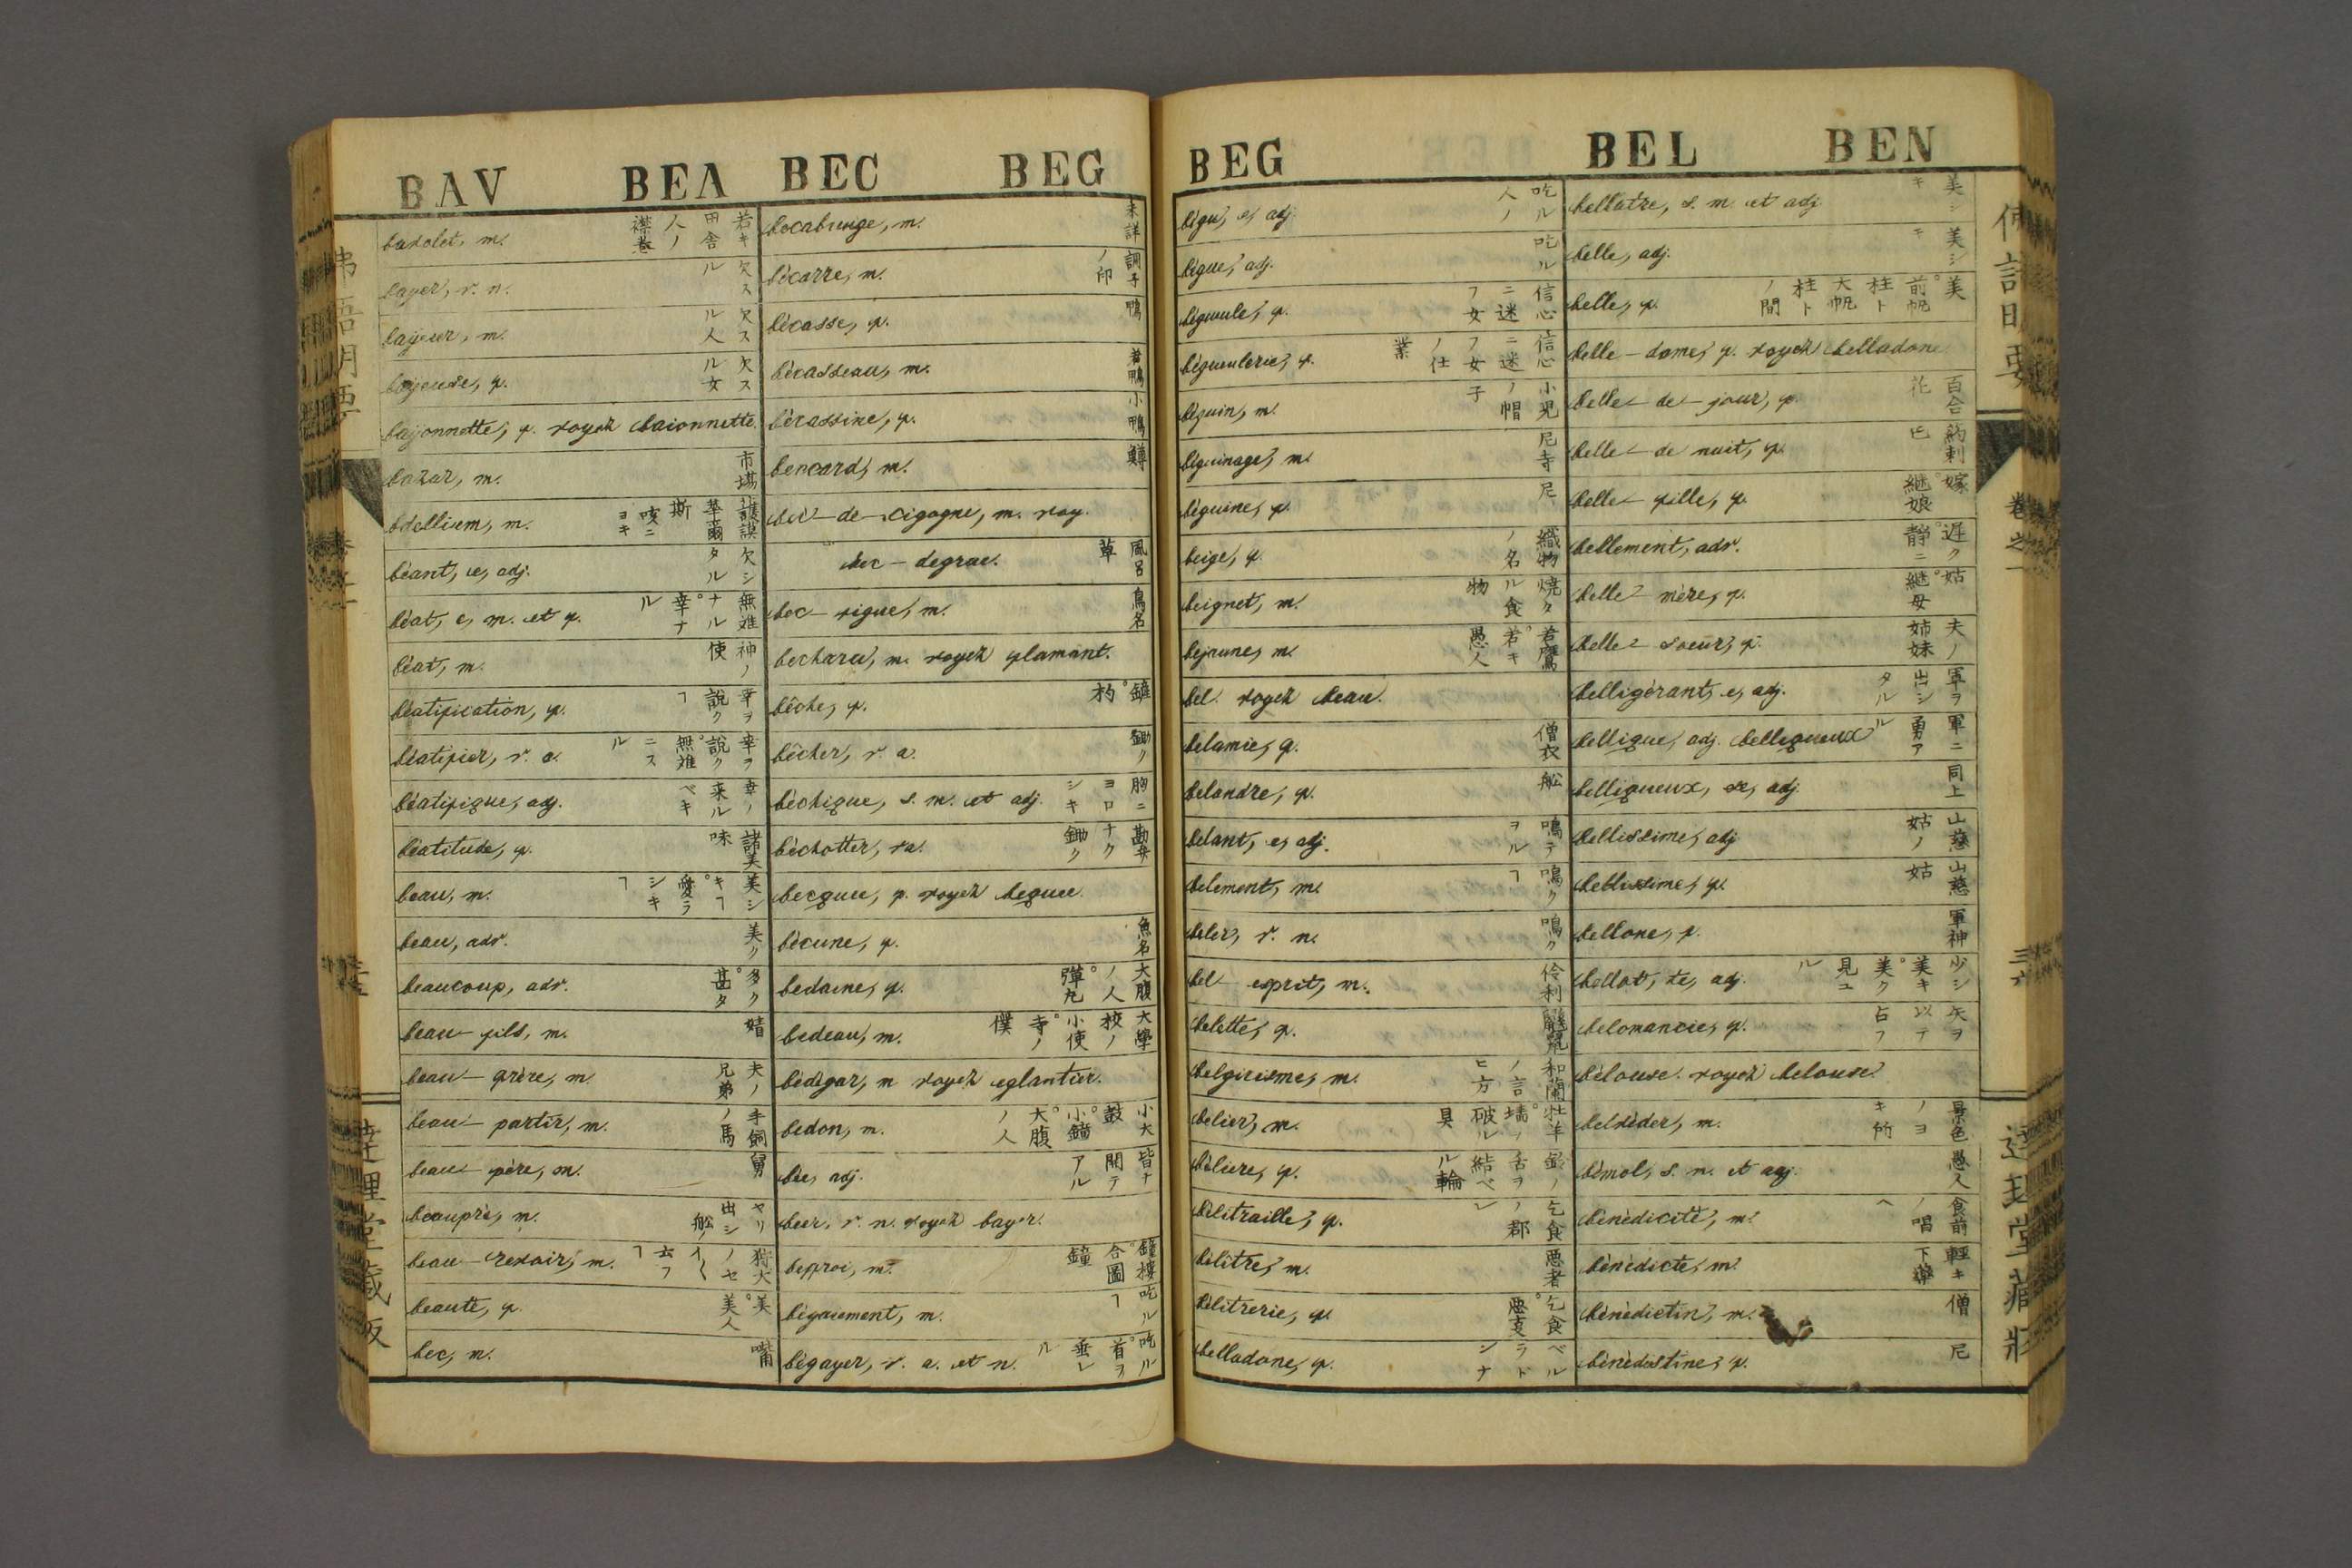 BAV BEA BEC BEG
bavolet, m. 若キ田舎人ノ襟巻
bayer, v. n. 欠スル
bayeur, m. 欠スル人
bayeuse, f. 欠スル女
bayonnette, f. voyez baionnette.
bazar, m. 市場
bdellium, m.
béant, e, adj. 欠シタル
béat, e, m. et f. 無難ナル。幸ナル
béat, m. 神ノ使
béatification, f. 幸ヲ説クヿ
béatifier, v. a. 幸ヲ説ク。無難ニスル
béatifique, adj. 幸ノ来ルベキ
béatitude, f. 諸美味
beau, m. 美シキヿ。愛ラシキヿ
beau, adv. 美ク
beaucoup, adv. 多ク。甚タ
beau-fils, m.
beau-frère, m. 夫ノ兄弟
beau-partir, m. 手飼ノ馬
beau-père, m. 舅
beaupré, m. ヤリ出シ舩
beau-revoir, m.
beauté, f. 美。美人
bec, m. 嘴
becabunge, m. 未詳
bécarre, m. 調子ノ印
bécasse, f. 鴨
bécasseau, m. 若鴨
bécassine, f. 小鴨
beccard, m. 鱒
bec-de-cigogne, m. voy.
bec-degrue. 風呂草
bec-figue, m. 鳥名
becharu, m. voyez flamant.
bêche, f. 鑵。杓
bêcher, v. a. 鋤ク
béchique, s. m. et adj. 胸ニヨロシキ
béchotter, va. 勘弁ナク鋤ク
becque, f. voyez beque.
bécune, f. 魚名
bedaine, f. 大腹ノ人。弾丸
bedeau, m. 大學校ノ小使。寺ノ僕
bédégar, m voyez eglantier.
bedon, m. 小大鼓。小鐺。大腹ノ人
bée, adj. 皆ナ開テアル
beer, v. n. voyez bayer.
beffroi, m. 鐘樓。合圖鐘
bégaiement, m. 吃ルヿ
bégayer, v. a. et n. 吃ル。首ヲ垂レル
BEG BEL BEN
bégu, e, adj. 吃ル人ノ
bègue, adj. 吃ル
bégueule, f. 信心ニ迷フ女
bégueulerie, f. 信心ニ迷フ女ノ仕業
béguin, m. 小児ノ帽子
béguinage, m. 尼寺
béguine, f. 尼
beige, f. 織物ノ名
beignet, m. 焼タル食物
bejaune, m. 若鷹。若キ愚人
bel voyez beau.
belamie, f. 僧衣
belandre, f. 舩
belant, e, adj. 鳴テヲル
belement, m. 鳴クヿ
beler, v. n. 鳴ク
bel esprit, m. 伶利
belette, f.
belgicisme, m. 和蘭ノ言ヒ方
belier, m. 牡羊。墻ノ破ル具
bélière, f. 鈴ノ舌ヲ結ベル輪
bélitraille, f. 乞食ノ郡
bélitre, m. 悪者
bélitrerie, f. 乞食。悪支
belladone, f. ベルラドンナ
bellatre, s. m. et adj 美シキ
belle, adj. 美シキ
belle, f. 美。前帆柱ト大帆柱トノ間
belle-dame, f. voyez belladone
belle-de-jour, f. 百合花
belle-de nuit, f. 約刺巴
belle-fille, f. 嫁。継娘
bellement, adv. 遅ク。静ニ
belle mère, f. 姑。継母
belle-soeur, f. 夫ノ姉妹
belligérant, e, adj. 軍ヲ出シタル
bellique, adj. belliqueux 軍ニ勇アル
belliqueux, se, adj. 同上
bellissime, adj 山慈姑ノ
bellissime, f. 山慈姑
bellone, f. 軍神
bellot, te, adj. 少シ美キ。美ク見ユル
belomancie, f. 矢ヲ以テ占フ
bélouse. voyez belouse.
belvéder, m. 景色ノヨキ所
bémol, s. n. et adj. 愚人
bénédicité, m. 食前ノ唱ヘ
bénédicte, m. 輕キ下藥
bénédictin, m. 僧
bénédictine, f. 尼
巻之一
三六